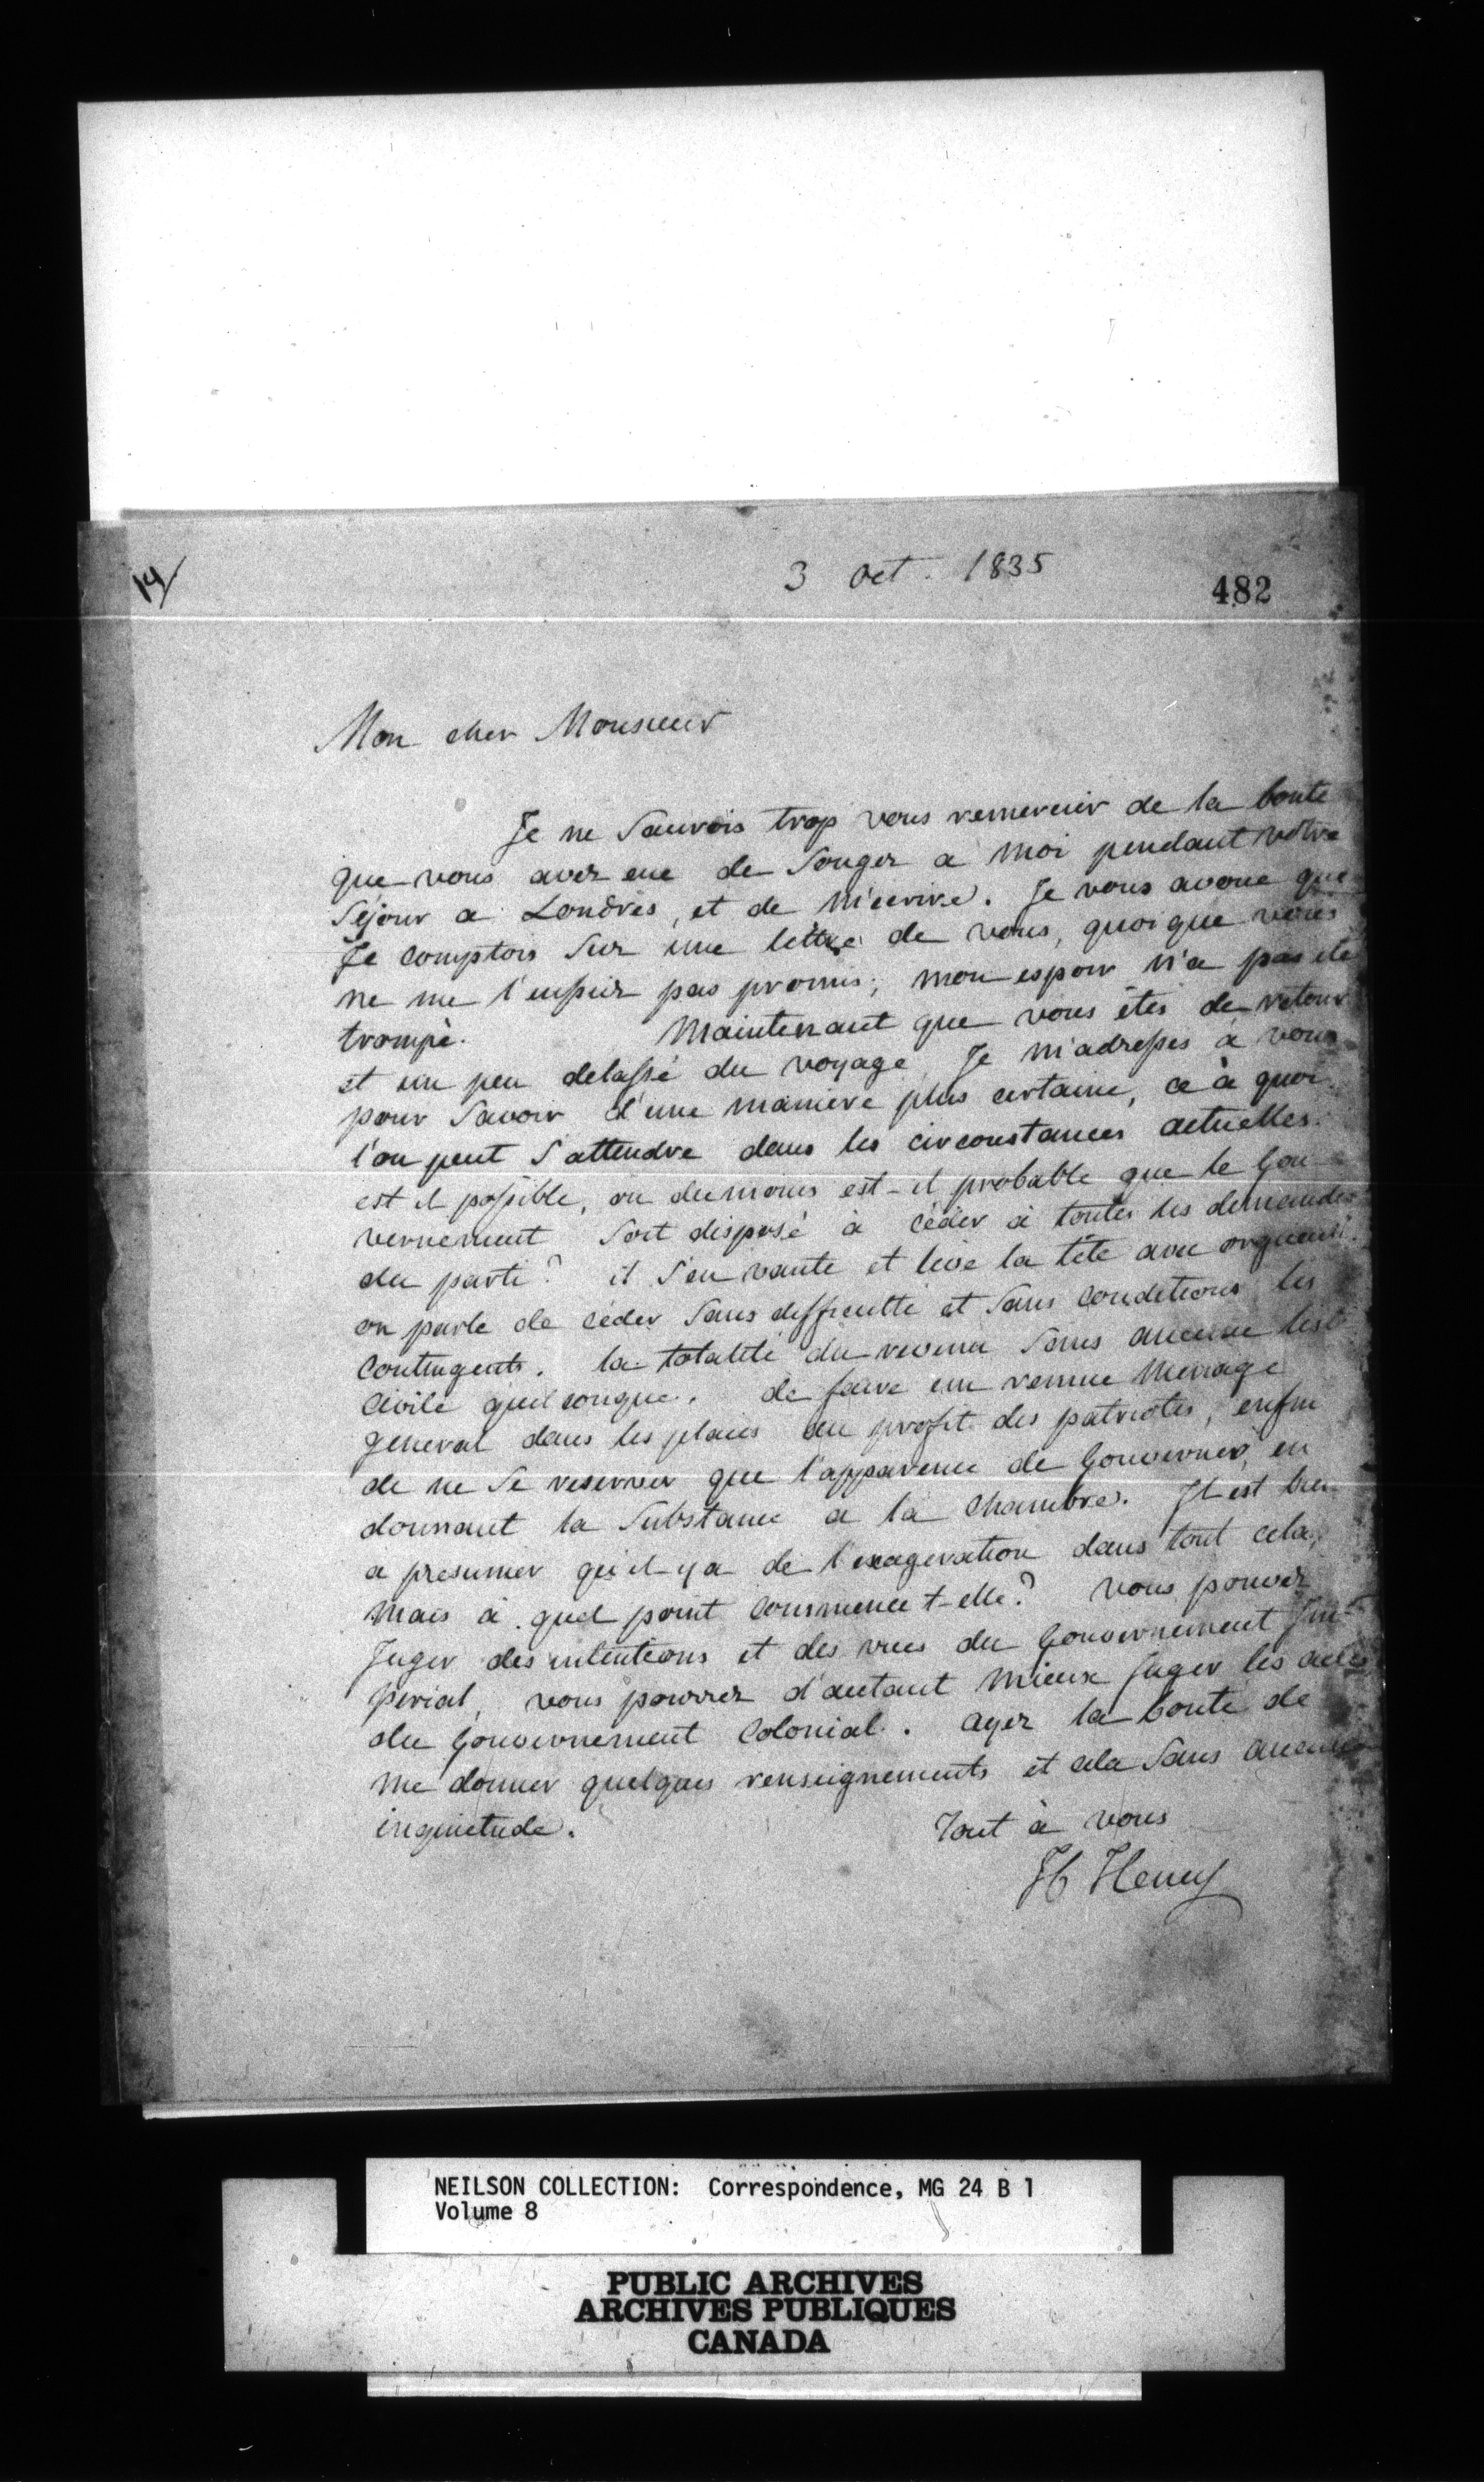 14/
3 Oct. 1835
482
Mon cher Monsieur
Je ne saurois trop vous remercier de la bonte
que vous avez eue de songer a moi pendant votre
séjour a Londres, et de m'ecrire. Je vous avoue que
Je comptois sur une lettre de vous, quoique vous
ne me l'eussiez pas promis; mon espoir n'a pas ete
trompé. Maintenant que vous êtes de retour
et un peu delassé du voyage Je m'adresses à vous
pour savoir d'une maniere plus certaine, ce à quoi
l'on peut s'attendre dans les circonstances actuelles.
est il possible, ou dumoins est-il probable que le Gou-
vernement soit disposé à céder à toutes les demandes
du parti? il s'en vante et leve la tête avec orgueuil.
on parle de céder sans difficulté et sans conditions les
contingents. la totalité du revenu sans aucune liste
civile quelconque. de faire un remue menage
general dans les places au profit des patriotes, enfin
de ne se reserver que l'apparence de Gouverner, en
donnant la substance a la Chambre. Il est bien
a presumer qu'il y a de l'exageration dans tout cela,
mais à quel point commence t-elle? vous pouvez
Juger des intentions et des vues du Gouvernement Im-
perial, vous pourrez d'autant mieux Juger les actes
du Gouvernement Colonial. ayez la bonté de
me donner quelques renseignements et cela sans aucune
inquietude.
Tout à vous
H Heney
NEILSON COLLECTION: Correspondence, MG 24 B 1
Volume 8
PUBLIC ARCHIVES
ARCHIVES PUBLIQUES
CANADA